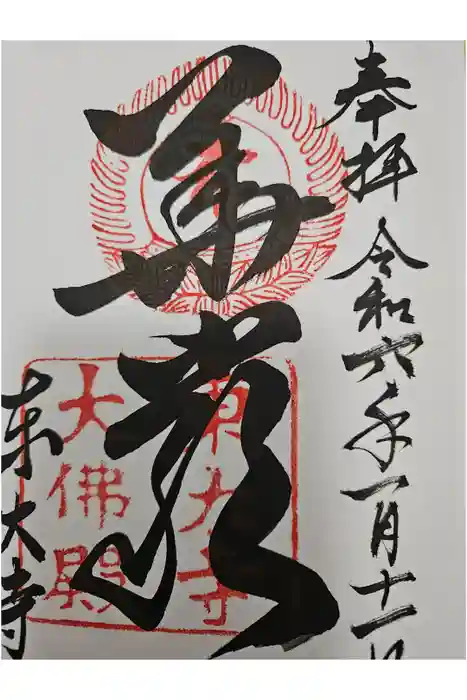 奉拝 令和六年一月十一日
華嚴
東大寺
大佛殿
東大寺